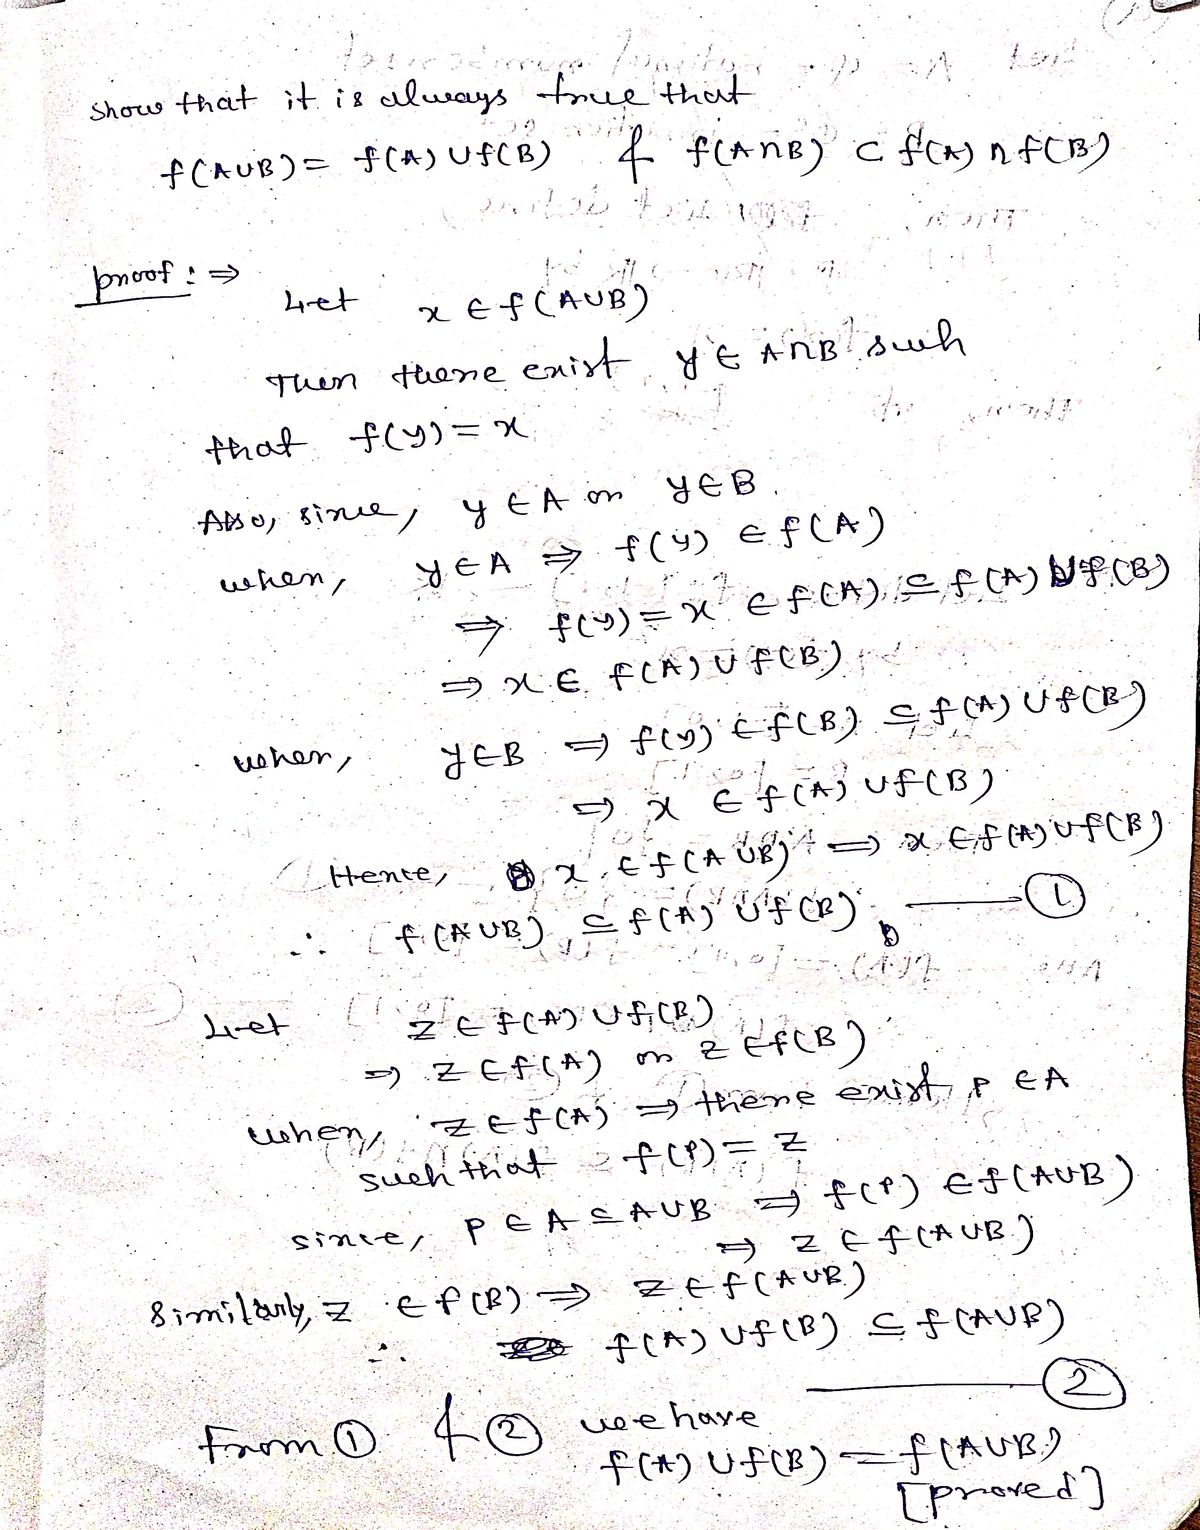 Show that it is always true that
f(A∪B) = f(A) ∪ f(B) & f(A∩B) ⊂ f(A) ∩ f(B)
proof : ⇒
Let x ∈ f(A∪B)
Then there exist y ∈ A∩B such
that f(y) = x
Also, since, y ∈ A or y ∈ B.
when, y ∈ A ⇒ f(y) ∈ f(A)
⇒ f(y) = x ∈ f(A) ⊆ f(A) ∪ f(B)
⇒ x ∈ f(A) ∪ f(B)
when, y ∈ B ⇒ f(y) ∈ f(B) ⊆ f(A) ∪ f(B)
⇒ x ∈ f(A) ∪ f(B)
Hence, x ∈ f(A∪B) ⇒ x ∈ f(A) ∪ f(B)
∴ f(A∪B) ⊆ f(A) ∪ f(B) — ①
Let z ∈ f(A) ∪ f(B)
⇒ z ∈ f(A) or z ∈ f(B)
when, z ∈ f(A) ⇒ there exist, p ∈ A
such that f(p) = z
since, p ∈ A ⊆ A∪B ⇒ f(p) ∈ f(A∪B)
⇒ z ∈ f(A∪B)
Similarly, z ∈ f(B) ⇒ z ∈ f(A∪B)
∴ f(A) ∪ f(B) ⊆ f(A∪B)
— ②
From ① & ② we have
f(A) ∪ f(B) = f(A∪B)
[proved]